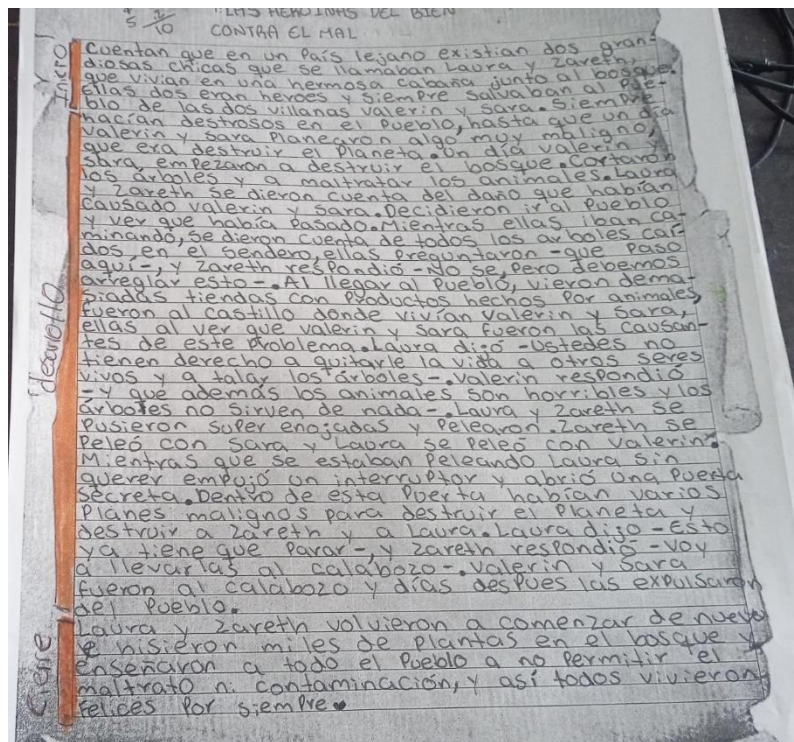 5 10
LAS HEROINAS DEL BIEN
CONTRA EL MAL
Inicio
Cuentan que en un País lejano existian dos gran-
diosas chicas que se llamaban Laura y Zareth,
que vivian en una hermosa cabaña junto al bosque.
ellas dos eran heroes y siempre salvaban al pue-
blo de las dos villanas valerin y sara. Siempre
hacían destrosos en el Pueblo, hasta que un día
valerin y sara Planearon algo muy maligno,
que era destruir el Planeta. Un día valerin y
sara, empezaron a destruir el bosque. Cortaron
los árboles y a maltratar los animales. Laura
y Zareth se dieron cuenta del daño que habían
causado valerin y sara. Decidieron ir al Pueblo
y ver que había Pasado. Mientras ellas iban ca-
minando, se dieron cuenta de todos los arboles caí-
dos en el sendero, ellas Preguntaron -que Paso
aquí-, y Zareth respondió -No se, Pero debemos
arreglar esto-. Al llegar al Pueblo, vieron dema-
siadas tiendas con Productos hechos Por animales,
fueron al castillo donde vivían valerin y sara,
ellas al ver que valerin y sara fueron las causan-
tes de este Problema. Laura dijo -ustedes no
tienen derecho a quitarle la vida a otros seres
vivos y a talar los árboles-. valerin respondió
-y que además los animales son horribles y los
árboles no sirven de nada-. Laura y Zareth se
Pusieron super enojadas y Pelearon. Zareth se
Peleó con Sara y Laura se Peleó con valerin.
Mientras que se estaban Peleando Laura sin
querer empujó un interruptor y abrió una Puerta
secreta. Dentro de esta Puerta habían varios
Planes malignos Para destruir el Planeta y
destruir a Zareth y a Laura. Laura dijo -Esto
ya tiene que Parar-, y Zareth respondió -voy
a llevarlas al calabozo-. Valerin y Sara
fueron al calabozo y días despues las expulsaron
del Pueblo.
Laura y Zareth volvieron a comenzar de nuevo
e hisieron miles de Plantas en el bosque y
enseñaron a todo el Pueblo a no Permitir el
maltrato ni contaminación, y así todos vivieron
felices Por siempre.
desarollo
Cierre